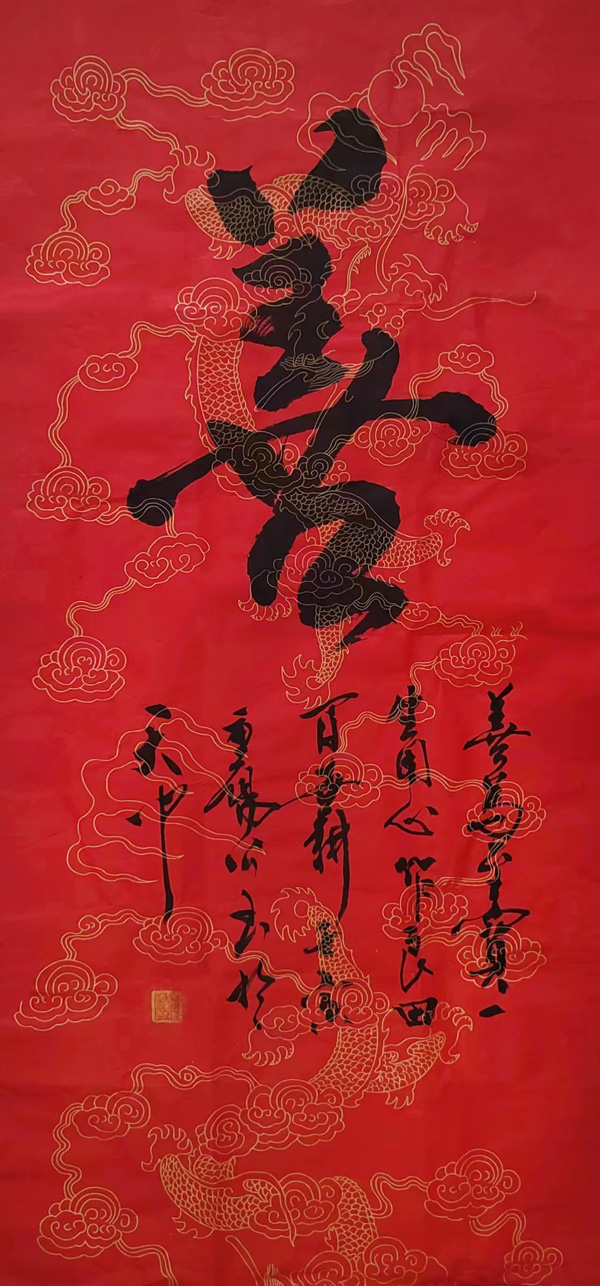 善
善為至寶一
生用心作良田
百世耕 壬寅
重陽书於
天中